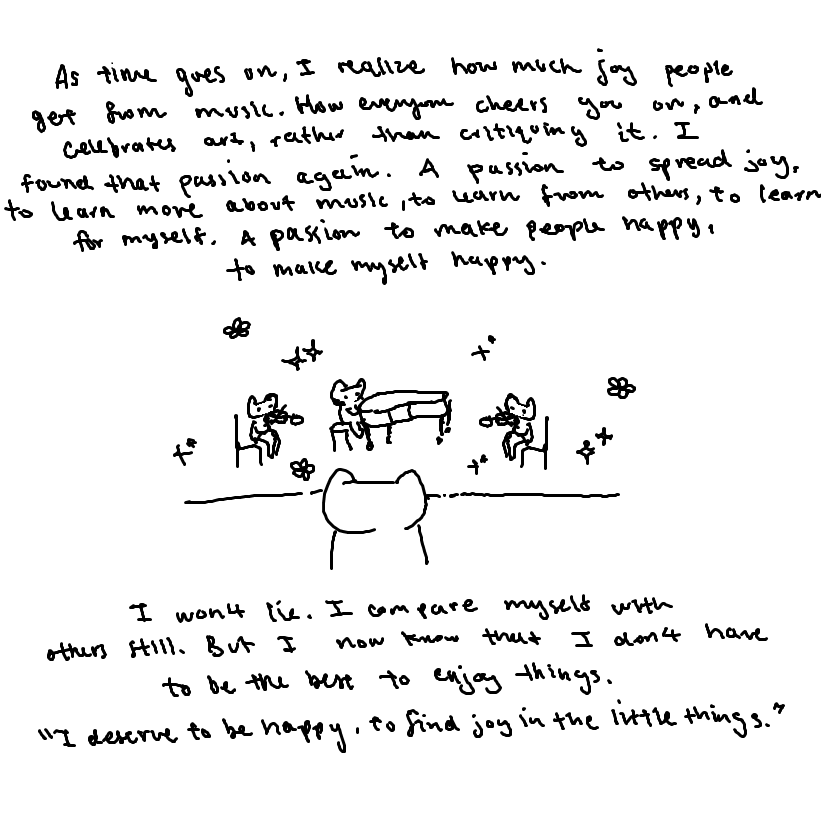 As time goes on, I realize how much joy people
get from music. How everyone cheers you on, and
celebrates art, rather than critiquing it. I
found that passion again. A passion to spread joy,
to learn more about music, to learn from others, to learn
for myself. A passion to make people happy,
to make myself happy.
I won't lie. I compare myself with
others still. But I now know that I don't have
to be the best to enjoy things.
"I deserve to be happy, to find joy in the little things."